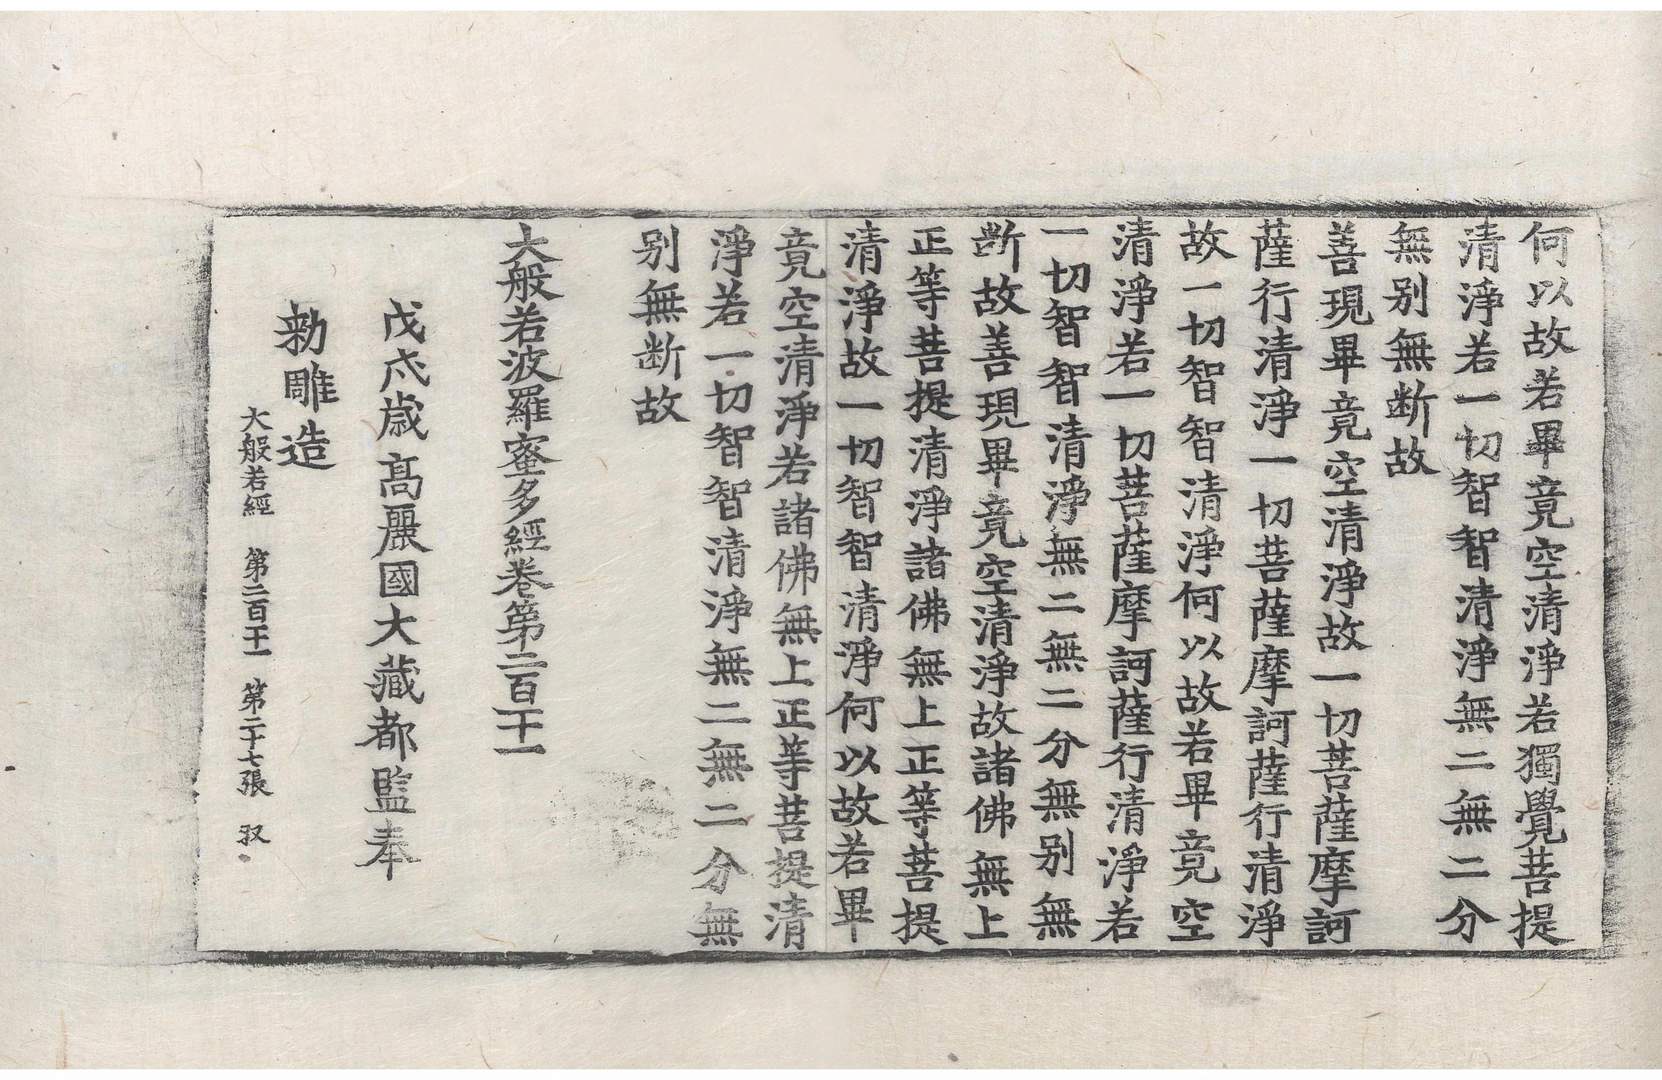 何以故若畢竟空清淨若獨覺菩提
清淨若一切智智清淨無二無二分
無別無断故
善現畢竟空清淨故一切菩薩摩訶
薩行清淨一切菩薩摩訶薩行清淨
故一切智智清淨何以故若畢竟空
清淨若一切菩薩摩訶薩行清淨若
一切智智清淨無二無二分無別無
断故善現畢竟空清淨故諸佛無上
正等菩提清淨諸佛無上正等菩提
清淨故一切智智清淨何以故若畢
竟空清淨若諸佛無上正等菩提清
淨若一切智智清淨無二無二分無
別無断故
大般若波羅蜜多經卷第二百二十一
戊戌歲高麗國大藏都監奉
勑雕造
大般若經 第二百二十一 第二十七張